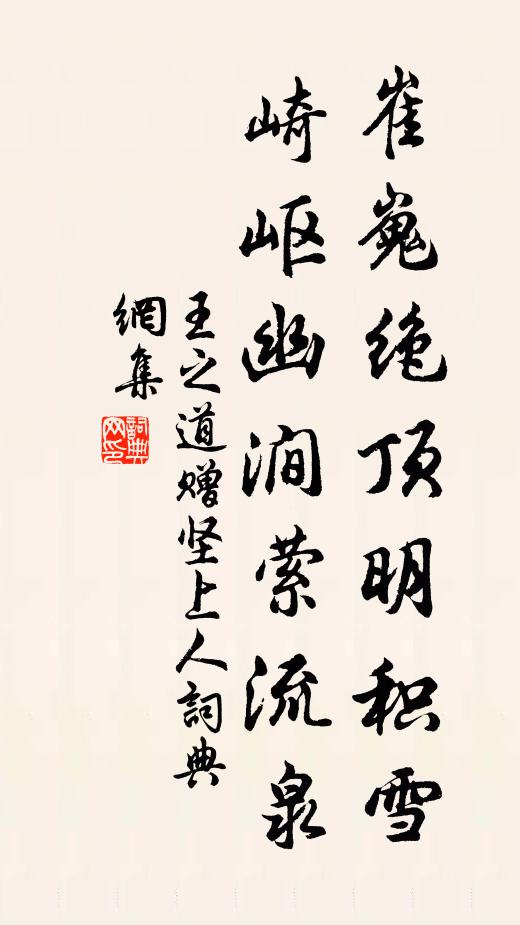 崔嵬绝顶明积雪
崎岖幽涧萦流泉
王之道赠坚上人詞典
網集
詞典
网印